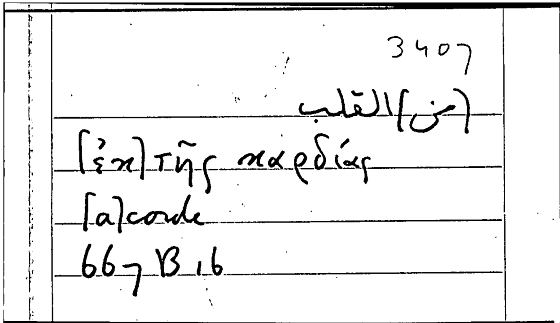 3407
[من] القلب
[ἐκ] τῆς καρδίας
[a] corde
667 B 16